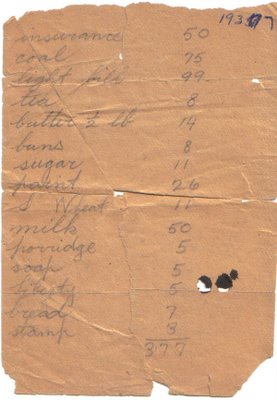 1937
insurance 50
coal 75
light bill 99
tea 8
butter ½ lb 14
buns 8
sugar 11
paint 26
S Wheat 11
milk 50
porridge 5
soap 5
liberty 5
bread 7
stamp 3
377